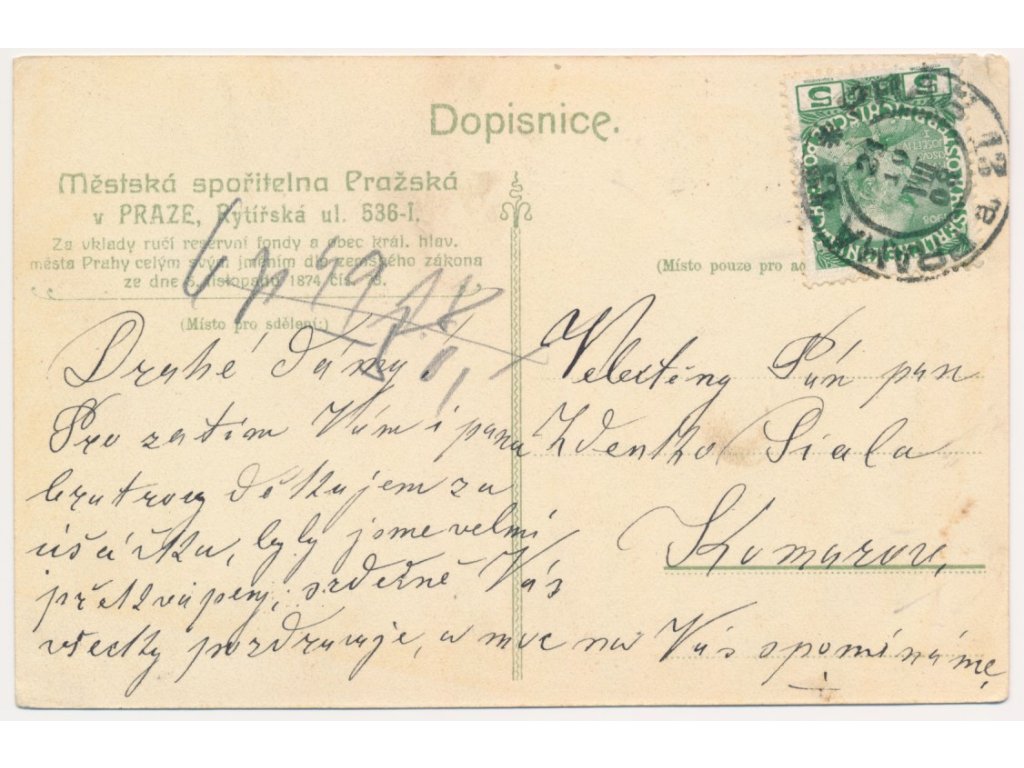 Dopisnice.
Městská spořitelna Pražská
v PRAZE, Rytířská ul. 536-I.
Za vklady ručí reservní fondy a obec král. hlav.
města Prahy celým svým jměním dle zemského zákona
ze dne 5. listopadu 1874 čís. 78.
(Místo pro sdělení:)
(Místo pouze pro ad
5 5
Drahé dámy!
Pro zatím Vám i panu
bratrovy děkujem za
úšáčka, byly jsme velmi
překvapeny, srdečně Vás
všecky pozdravuje, a moc na Vás spomínáme
Velectěný Pán pan
Zdenko Fiala
Komarov,